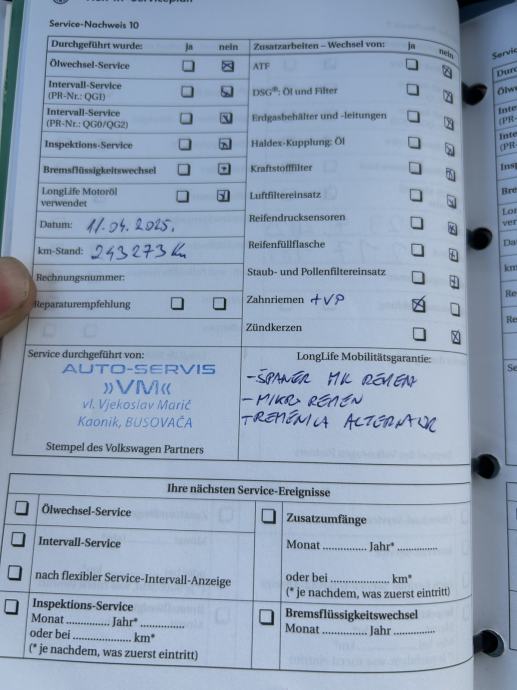 Service-Nachweis 10
Durchgeführt wurde: ja nein
Ölwechsel-Service
Intervall-Service
(PR-Nr.: QGI)
Intervall-Service
(PR-Nr.: QG0/QG2)
Inspektions-Service
Bremsflüssigkeitswechsel
LongLife Motoröl
verwendet
Datum: 11.04.2025.
km-Stand: 243273 Km
Rechnungsnummer:
Reparaturempfehlung
Zusatzarbeiten – Wechsel von: ja nein
ATF
DSG®: Öl und Filter
Erdgasbehälter und -leitungen
Haldex-Kupplung: Öl
Kraftstofffilter
Luftfiltereinsatz
Reifendrucksensoren
Reifenfüllflasche
Staub- und Pollenfiltereinsatz
Zahnriemen + VP
Zündkerzen
Service durchgeführt von:
AUTO-SERVIS
»VM«
vl. Vjekoslav Marić
Kaonik, BUSOVAČA
Stempel des Volkswagen Partners
LongLife Mobilitätsgarantie:
- ŠPANER MK REMENA
- MIKRO REMEN
- REMENICA ALTERNATOR
Ihre nächsten Service-Ereignisse
Ölwechsel-Service
Intervall-Service
nach flexibler Service-Intervall-Anzeige
Inspektions-Service
Monat .............. Jahr* ..............
oder bei .................... km*
(* je nachdem, was zuerst eintritt)
Zusatzumfänge
Monat .............. Jahr* ..............
oder bei .................... km*
(* je nachdem, was zuerst eintritt)
Bremsflüssigkeitswechsel
Monat .............. Jahr ..............